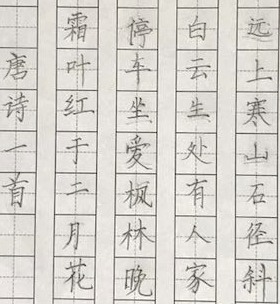 远上寒山石径斜
白云生处有人家
停车坐爱枫林晚
霜叶红于二月花
唐诗一首